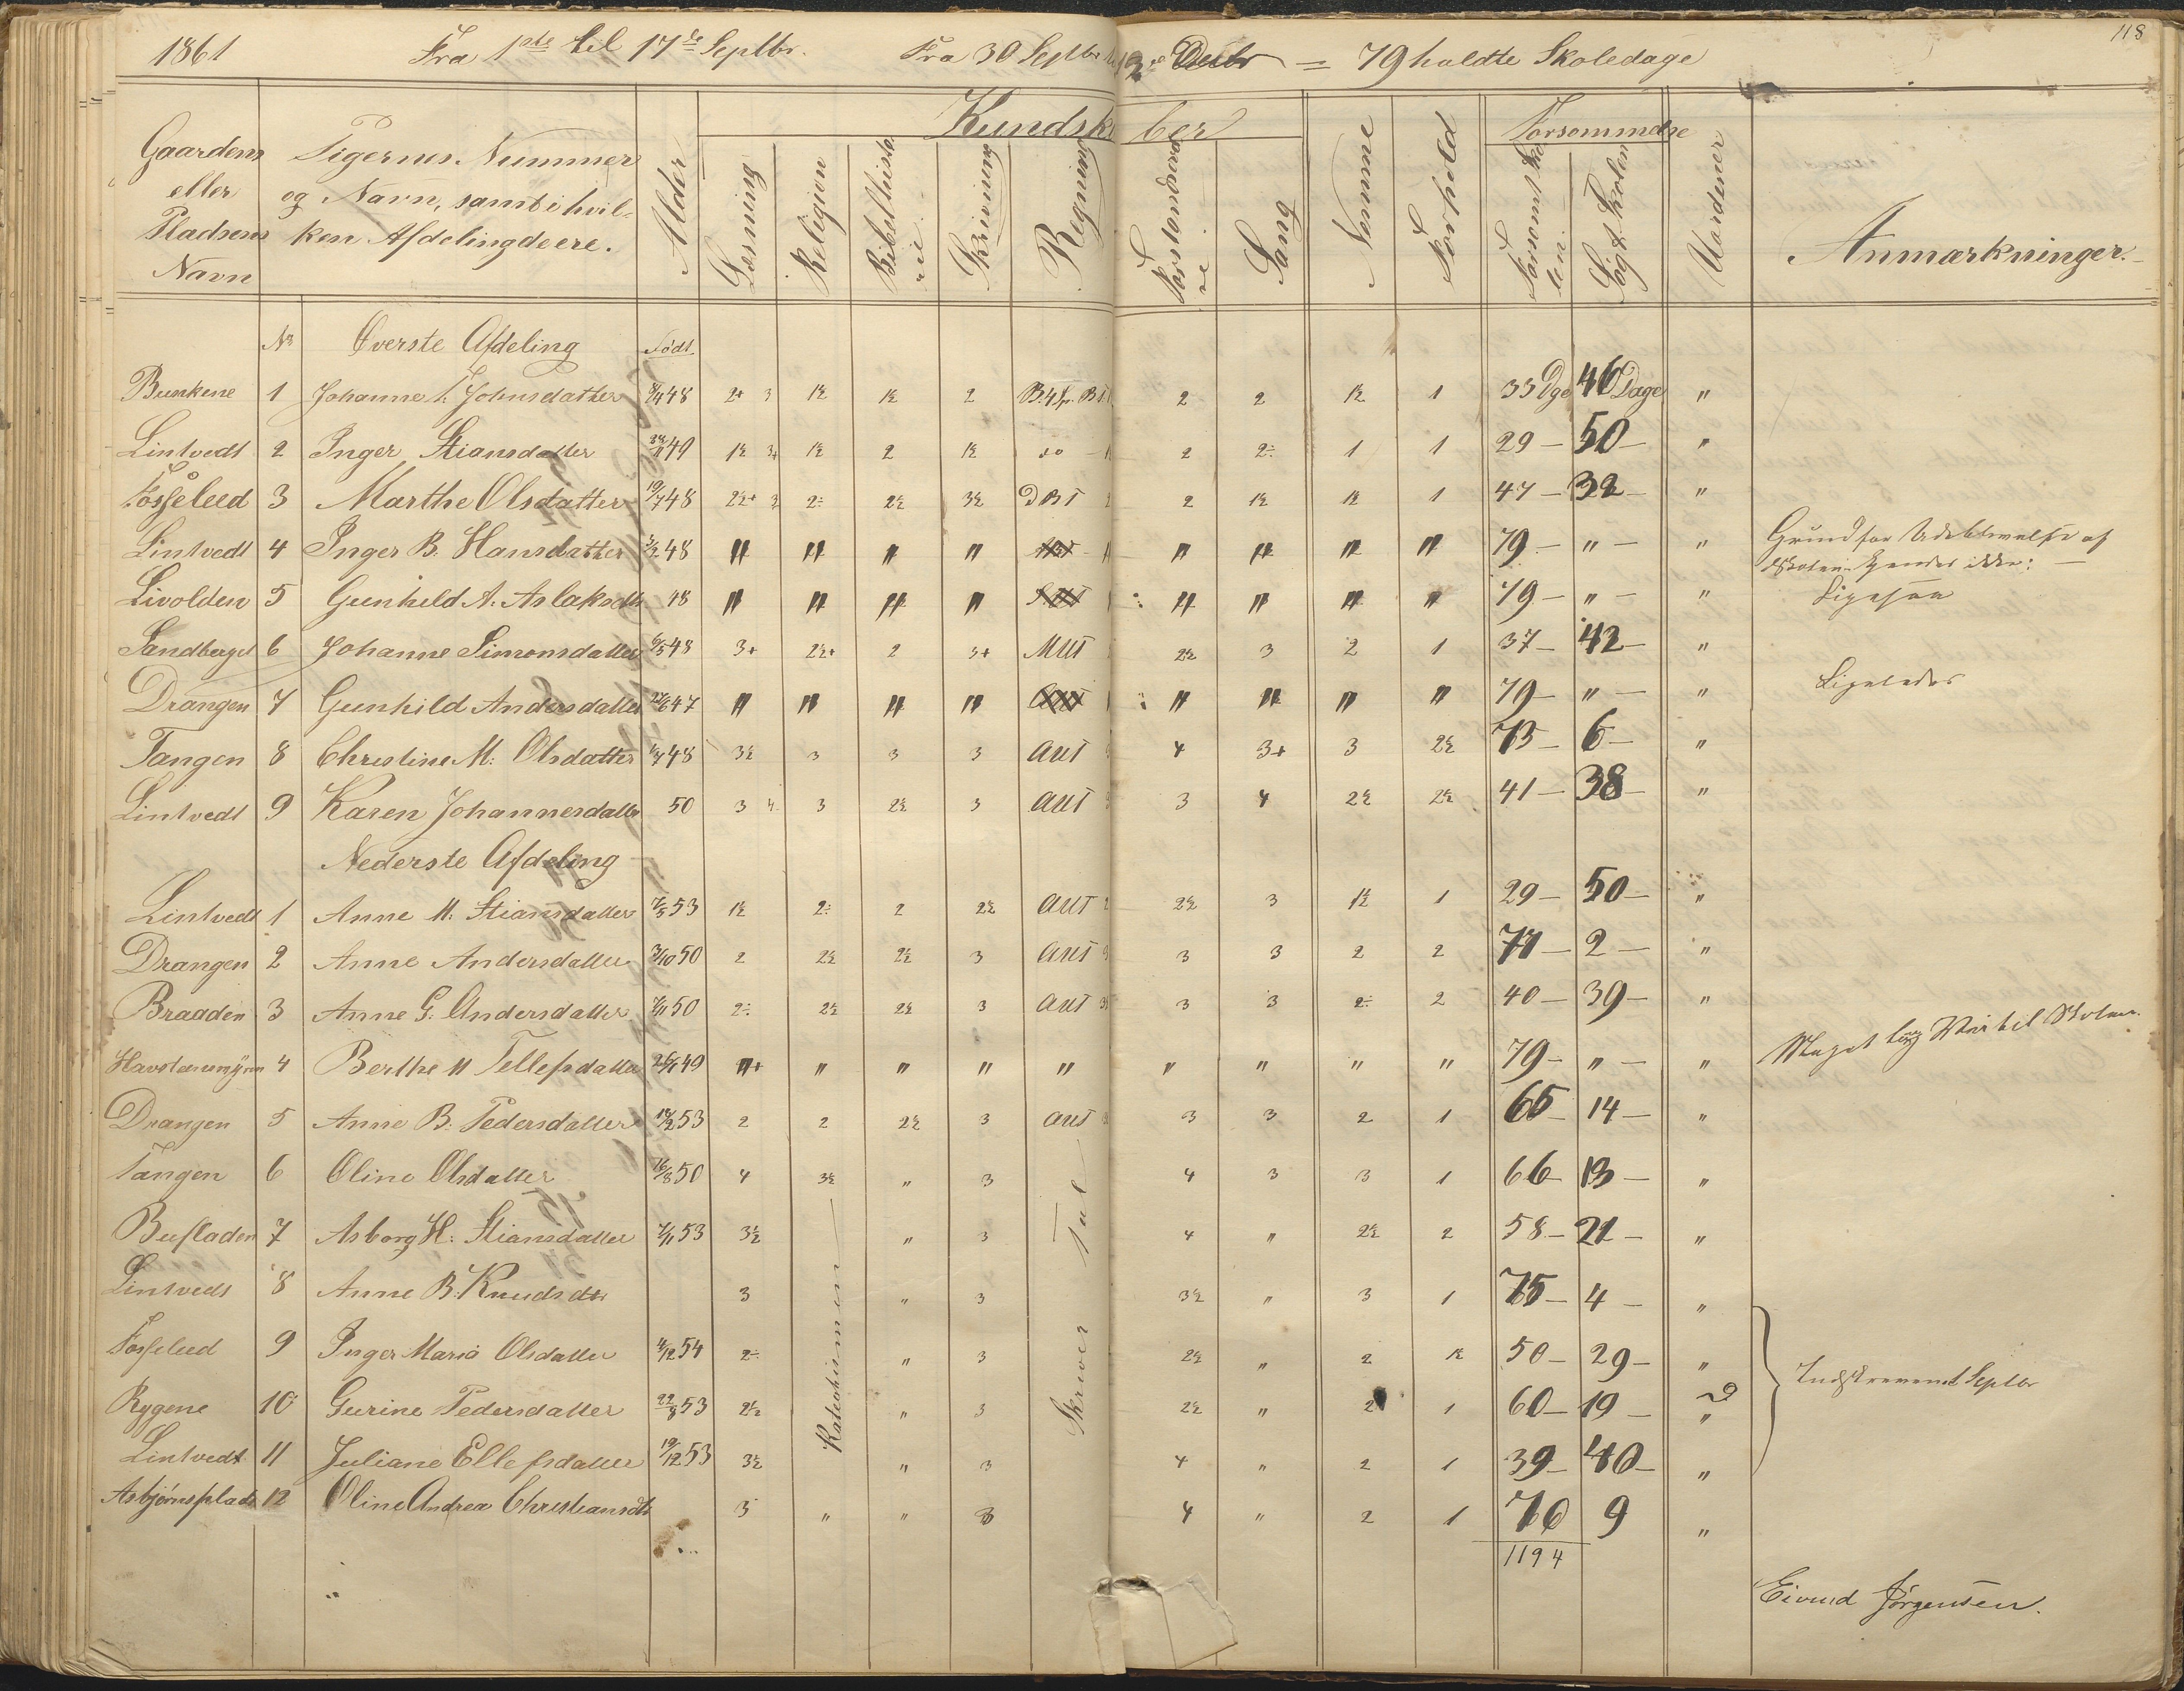 118
1861 Fra 1ste til 17de Septbr. Fra 30 Septbr = 79 holdte Skoledage
Gaardens eller Pladsens Navn
Pigernes Nummer og Navn, samt i hvilken Afdeling de ere.
Alder
Kundskaber
Læsning
Religion
Bibelhistorie
Skrivning
Regning
Sang
Nemme
Forhold
Forsømmelse
Forsømt Skolen.
Søgt Skolen
Uordener
Anmærkninger.
No Øverste Afdeling Født
Buskene 1 Johanne T. Johnsdatter 48 2+ 3 1½ 1½ 2 2 2 1½ 1 33 Dge 46 Dage "
Lintvedt 2 Inger Stiansdatter 49 1½ 3+ 1½ 2 1½ do 2 2÷ 1 1 29 – 50 – "
Fosseleed 3 Marthe Olsdatter 19/7 48 2½+ 3 2÷ 2½ 3½ DBT 2 1½ 1½ 1 47 – 32 – "
Lintvedt 4 Inger B. Hansdatter 48 " " " " " " " " 79 – " – " Grund for Udeblivelse af Skolen kjendes ikke: –
Livolden 5 Gunhild A. Aslaksdtr 48 " " " " " " " " 79 – " – " Ligesaa
Sandberget 6 Johanne Simonsdatter 48 3+ 2½+ 2 3+ MUT 2½ 3 2 1 37 – 42 – "
Drangen 7 Gunhild Andersdatter 47 " " " " " " " " 79 – " – " Ligeledes
Tangen 8 Christine M. Olsdatter 48 3½ 3 3 3 AUT 4 3+ 3 2½ 73 – 6 – "
Lintvedt 9 Karen Johannesdatter 50 3 4 3 2½ 3 AUT 3 4 2½ 2½ 41 – 38 – "
Nederste Afdeling
Lintvedt 1 Anne M. Stiansdatter 7/5 53 1½ 2÷ 2 2½ AUT 2½ 3 1½ 1 29 – 50 – "
Drangen 2 Anne Andersdatter 3/10 50 2 2½ 2½ 3 AUT 3 3 2 2 77 – 2 – "
Braaden 3 Anne G. Andersdatter 7/11 50 2÷ 2½ 2½ 3 AUT 3 3 2÷ 2 40 – 39 – "
4 Berthe M Tellefsdatter 49 "+ " " " " " " " " 79 – " – " Meget lang Vei til Skolen.
Drangen 5 Anne B. Pedersdatter 53 2 2 2½ 3 AUT 3 3 2 1 65 – 14 – "
Tangen 6 Oline Olsdatter 16/8 50 4 3½ " 3 4 3 3 1 66 – 13 – "
Bufladen 7 Asborg H. Stiansdatter 7/11 53 3½ " 3 4 " 2½ 2 58 – 21 – "
Lintvedt 8 Anne B. Knudsdtr 3 " 3 3½ " 3 1 75 – 4 – "
Fosseleed 9 Inger Maria Olsdatter 54 2÷ " 3 2½ " 2 1½ 50 – 29 – "
Rygene 10 Gurine Pedersdatter 22/8 53 2½ " 3 2½ " 2 1 60 – 19 – "
Lintvedt 11 Juliane Ellefsdatter 19/12 53 3½ " 3 4 " 2 1 39 – 40 – "
Asbjørnsplads 12 Oline Andrea Christiansdtr 5 " " 3 4 " 2 1 70 9 "
Katechismen
Skriver Tal
Indskreven Septbr
1194
Eivind Jørgensen.